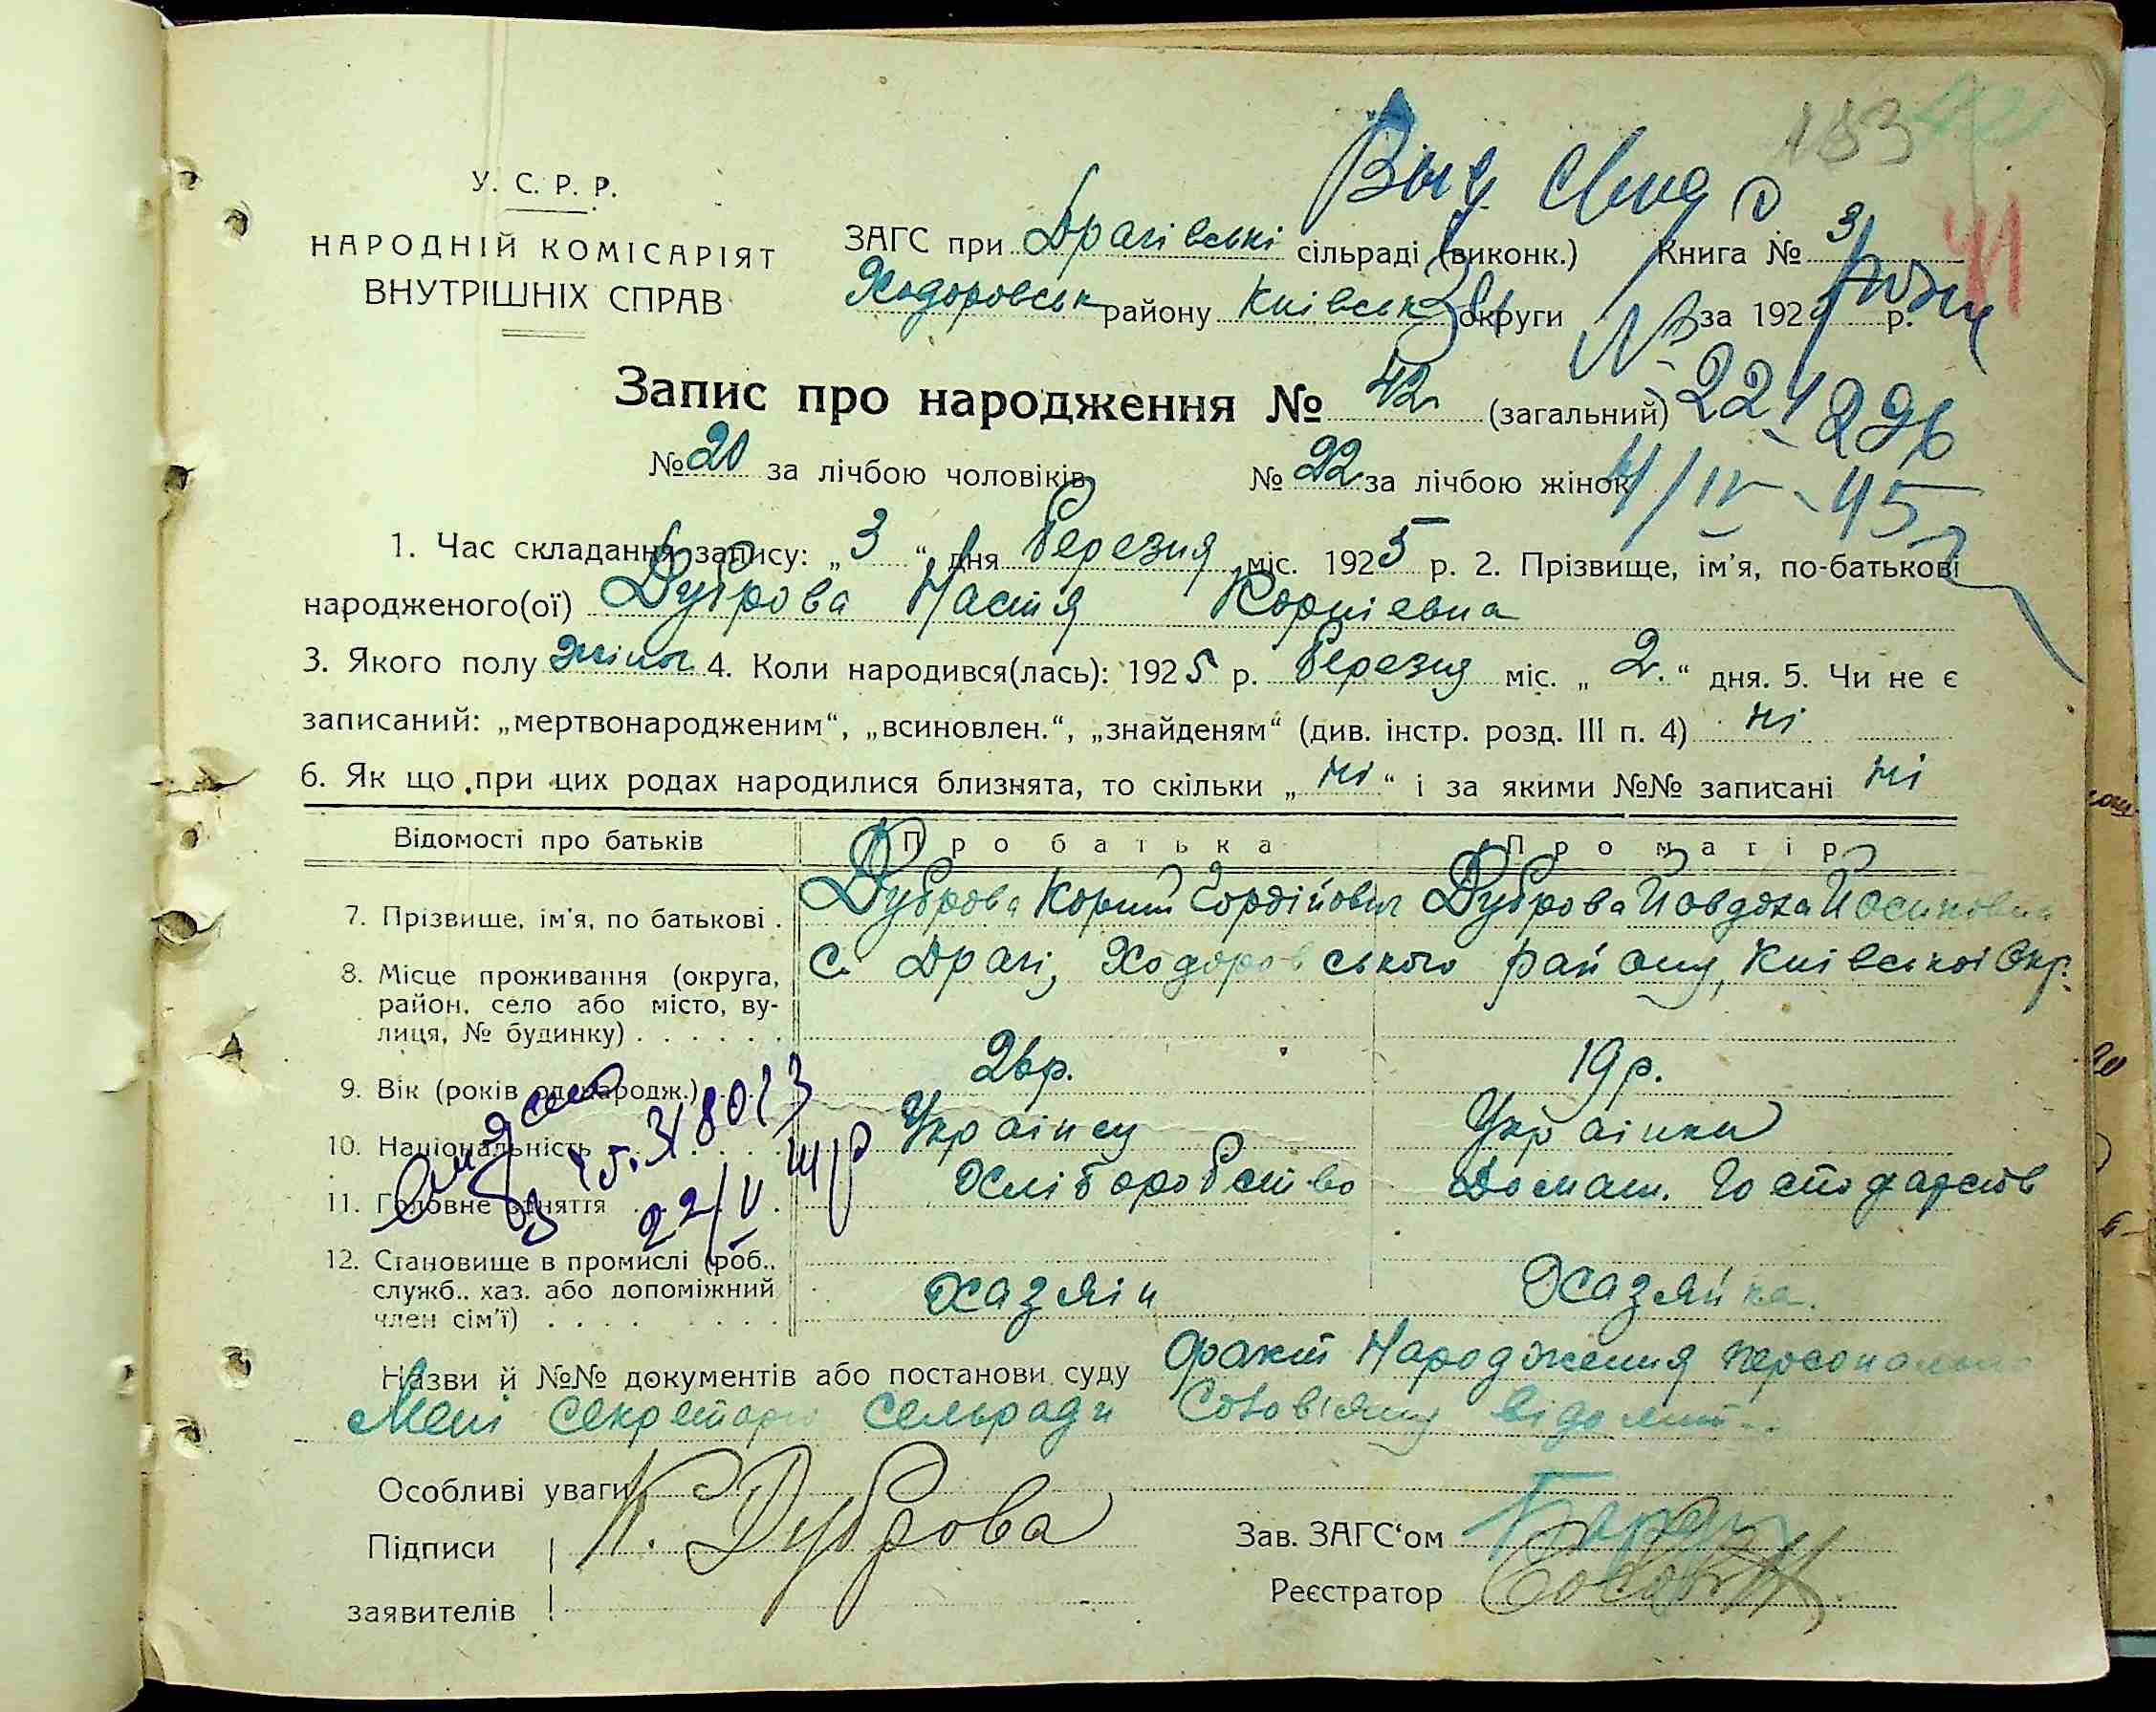 183
У. С. Р. Р.
НАРОДНІЙ КОМІСАРІЯТ
ВНУТРІШНІХ СПРАВ
41
ЗАГС при Драгівські сільраді (виконк.) Книга №
Ходоровськ району Київськ округи за 192 р.
Запис про народження № 42 (загальний)
№ 20 за лічбою чоловіків № 22 за лічбою жінок
4/IV - 45
1. Час складання запису: „3“ дня березня міс. 1925 р. 2. Прізвище, ім'я, по-батькові
народженого(ої) Дуброва Настя Корніевна
3. Якого полу жіноч. 4. Коли народився(лась): 1925 р. березня міс. „2.“ дня. 5. Чи не є
записаний: „мертвонародженим“, „всиновлен.“, „знайденям“ (див. інстр. розд. III п. 4) ні
6. Як що при цих родах народилися близнята, то скільки „ні“ і за якими №№ записані ні
Відомості про батьків Про батька Про матір
7. Прізвище, ім'я, по батькові . Дуброва Корній Гордійович Дуброва Йовдоха
8. Місце проживання (округа, с. Драгі, Ходоровського району, Київської Окр.
район, село або місто, ву-
лиця, № будинку) . . . . . .
9. Вік (років од народж.) . . 26р. 19р.
10. Національність . . . . Українец Українка
11. Головне заняття . . . . Хліборобство Домаш. Господарств
22/V
12. Становище в промислі (роб.,
служб., хаз. або допоміжний Хазяін Хазяйка.
член сім'ї) . . . . . . . .
Назви й №№ документів або постанови суду Факт Народження
Мені Секретарю Сельради відомий
Особливі уваги
Підписи К. Дуброва Зав. ЗАГС‘ом
заявителів Реєстратор